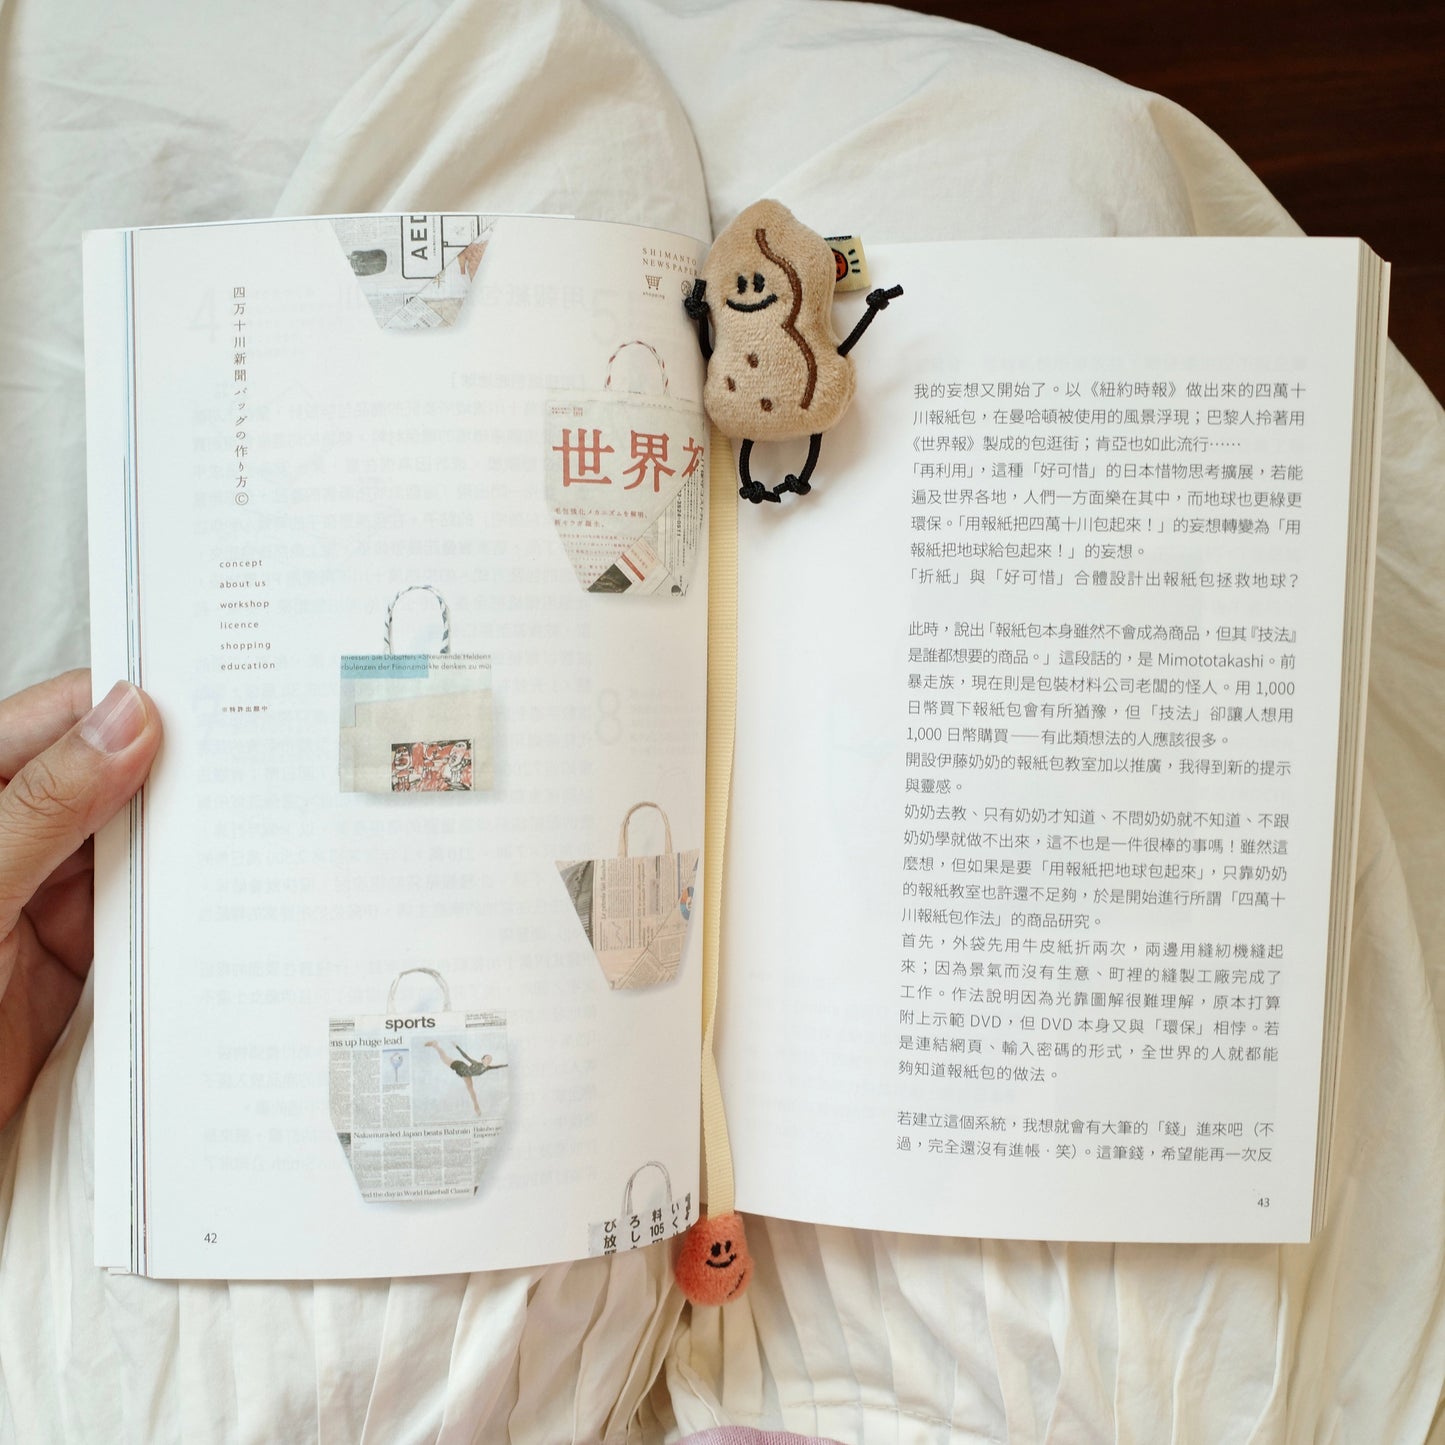 四万十川新聞バッグの作り方©
concept
about us
workshop
licence
shopping
education
※特許出願中
AED
SHIMANTO
NEWSPAPER
shopping
世界初
毛包強化メカニズムを解明。
新モウガ誕生。
niessen Sie Dubuffets »Streunende Helden«
rbulenzen der Finanzmärkte denken zu mü
sports
ens up huge lead
Nakamura-led Japan beats Bahrain
ed the day in World Baseball Classic
42
我的妄想又開始了。以《紐約時報》做出來的四萬十
川報紙包，在曼哈頓被使用的風景浮現；巴黎人拎著用
《世界報》製成的包逛街；肯亞也如此流行……
「再利用」，這種「好可惜」的日本惜物思考擴展，若能
遍及世界各地，人們一方面樂在其中，而地球也更綠更
環保。「用報紙把四萬十川包起來！」的妄想轉變為「用
報紙把地球給包起來！」的妄想。
「折紙」與「好可惜」合體設計出報紙包拯救地球？
此時，說出「報紙包本身雖然不會成為商品，但其『技法』
是誰都想要的商品。」這段話的，是 Mimototakashi。前
暴走族，現在則是包裝材料公司老闆的怪人。用 1,000
日幣買下報紙包會有所猶豫，但「技法」卻讓人想用
1,000 日幣購買——有此類想法的人應該很多。
開設伊藤奶奶的報紙包教室加以推廣，我得到新的提示
與靈感。
奶奶去教、只有奶奶才知道、不問奶奶就不知道、不跟
奶奶學就做不出來，這不也是一件很棒的事嗎！雖然這
麼想，但如果是要「用報紙把地球包起來」，只靠奶奶
的報紙教室也許還不足夠，於是開始進行所謂「四萬十
川報紙包作法」的商品研究。
首先，外袋先用牛皮紙折兩次，兩邊用縫紉機縫起
來；因為景氣而沒有生意、町裡的縫製工廠完成了
工作。作法說明因為光靠圖解很難理解，原本打算
附上示範 DVD，但 DVD 本身又與「環保」相悖。若
是連結網頁、輸入密碼的形式，全世界的人就都能
夠知道報紙包的做法。
若建立這個系統，我想就會有大筆的「錢」進來吧（不
過，完全還沒有進帳．笑）。這筆錢，希望能再一次反
43